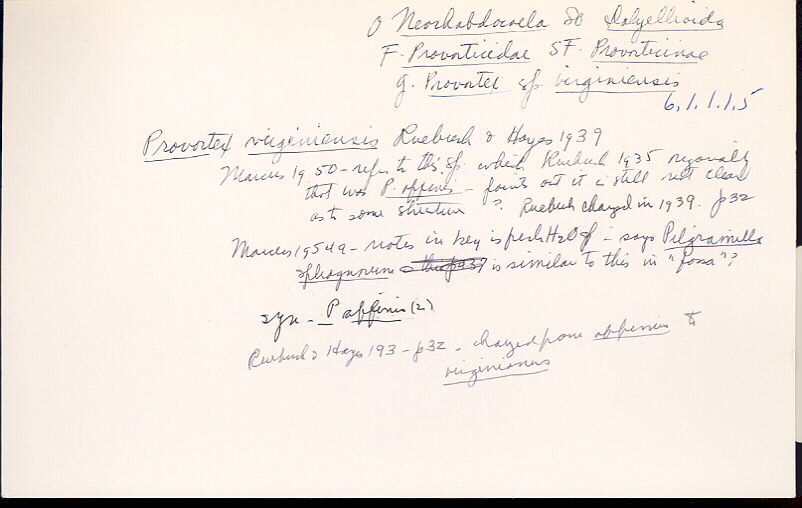 O Neorhabdocoela SO Dalyellioida
F. Provorticidae SF. Provorticinae
g. Provortex sp. virginiensis
6.1.1.1.5
Provortex virginiensis Ruebush & Hayes 1939
Marcus 1950 - refs to this sp. which Ruebush 1935
that was P. affinis - points out it is still not clear
as to some structure ? Ruebush changed in 1939. p32
Marcus 1954a - notes in key is fresh H2O sp - says Pilgramilla
sphagnorum is similar to this in "fossa"?
syn - P affinis (2)
Ruebush & Hayes 193 - p32 - changed from affinis to
virginianus